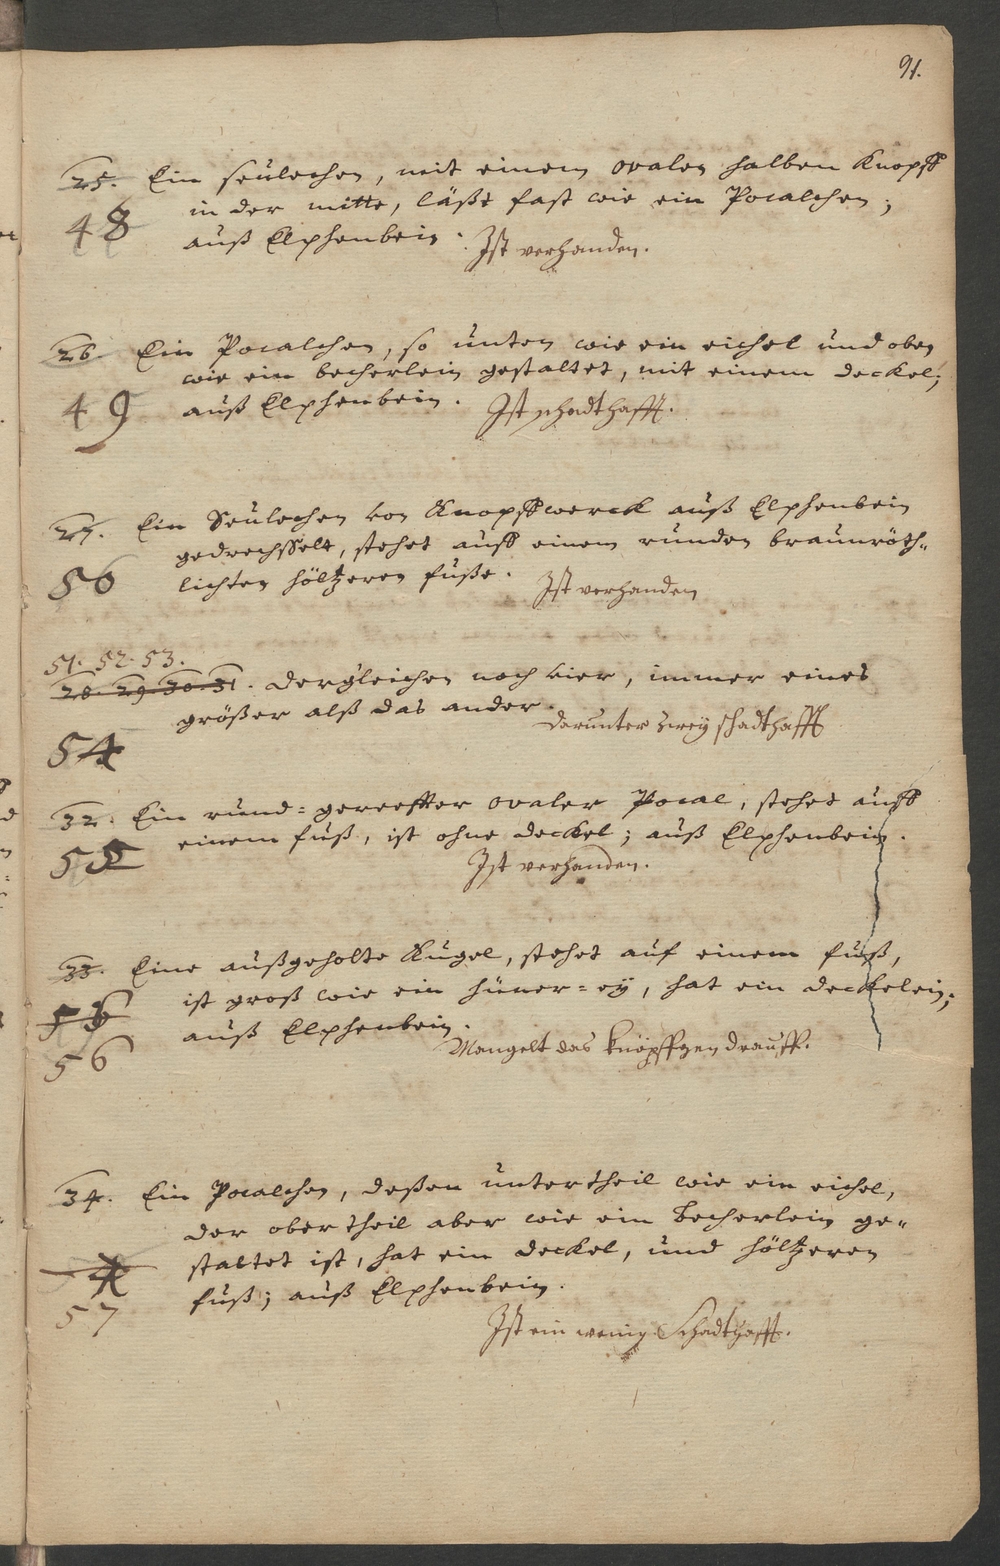 91.
25. Ein seülechen, mit einem ovalen halben Knopff
48 in der mitte, läßt fast wie ein Pocalchen;
auß Elphenbein. Ist verhanden.
26. Ein Pocalchen, so unten wie ein eichel und oben
wie ein becherlein gestaltet, mit einem deckel;
49 auß Elphenbein. Ist schadthafft.
27. Ein Seulechen von Knopffwerck auß Elphenbein
gedrechsselt, stehet auff einem runden braunröth-
50 lichten höltzeren fuße. Ist verhanden
51. 52. 53.
28. 29. 30. 31. dergleichen noch vier, immer eines
größer alß das ander. darunter zweÿ schadthafft
54
32. Ein rund=gereeffter ovaler Pocal, stehet auff
einem fuß, ist ohne deckel; auß Elphenbein.
55 Ist verhanden.
33. Eine außgeholte Kugel, stehet auf einem fuß,
ist groß wie ein hüner=eÿ, hat ein deckelein;
auß Elphenbein.
56 Mangelt das knöpffgen drauff.
34. Ein Pocalchen, deßen untertheil wie ein eichel,
der obertheil aber wie ein becherlein ge-
staltet ist, hat ein deckel, und höltzeren
57 fuß; auß Elphenbein.
Ist ein wenig Schadthafft.